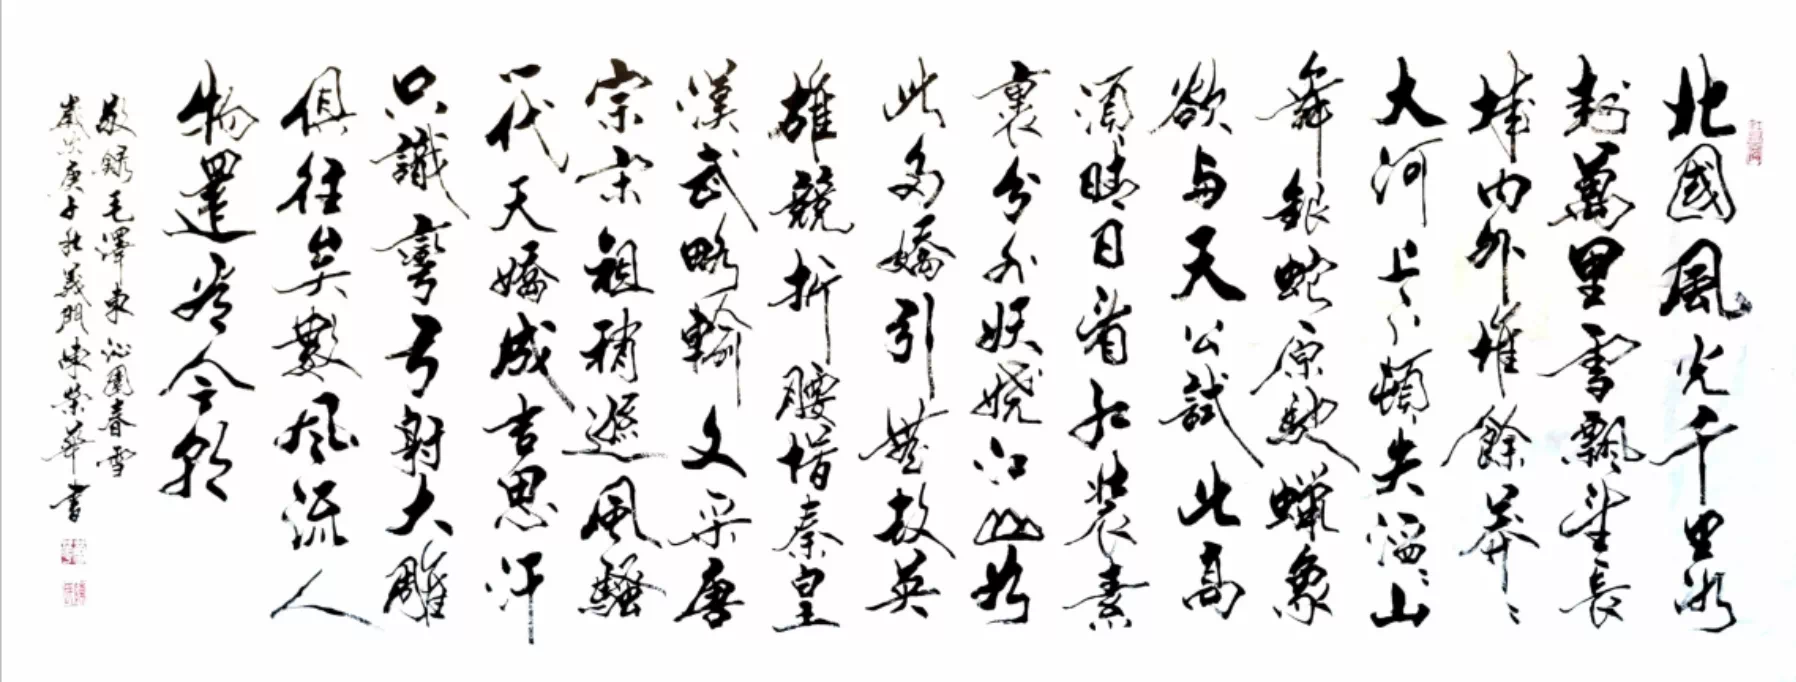 北國風光千里冰
封萬里雪飄望長
城内外惟餘莽〻
大河上下頓失滔〻山
舞銀蛇原馳蠟象
欲与天公試比高
須晴日看红裝素
裹分外妖嬈江山如
此多嬌引無数英
雄競折腰惜秦皇
漢武略輸文采唐
宗宋祖稍遜風騷
一代天嬌成吉思汗
只識彎弓射大雕
俱往矣數風流人
物還看今朝
敬録毛澤東沁園春雪
歲次庚子秋義門陳榮華書